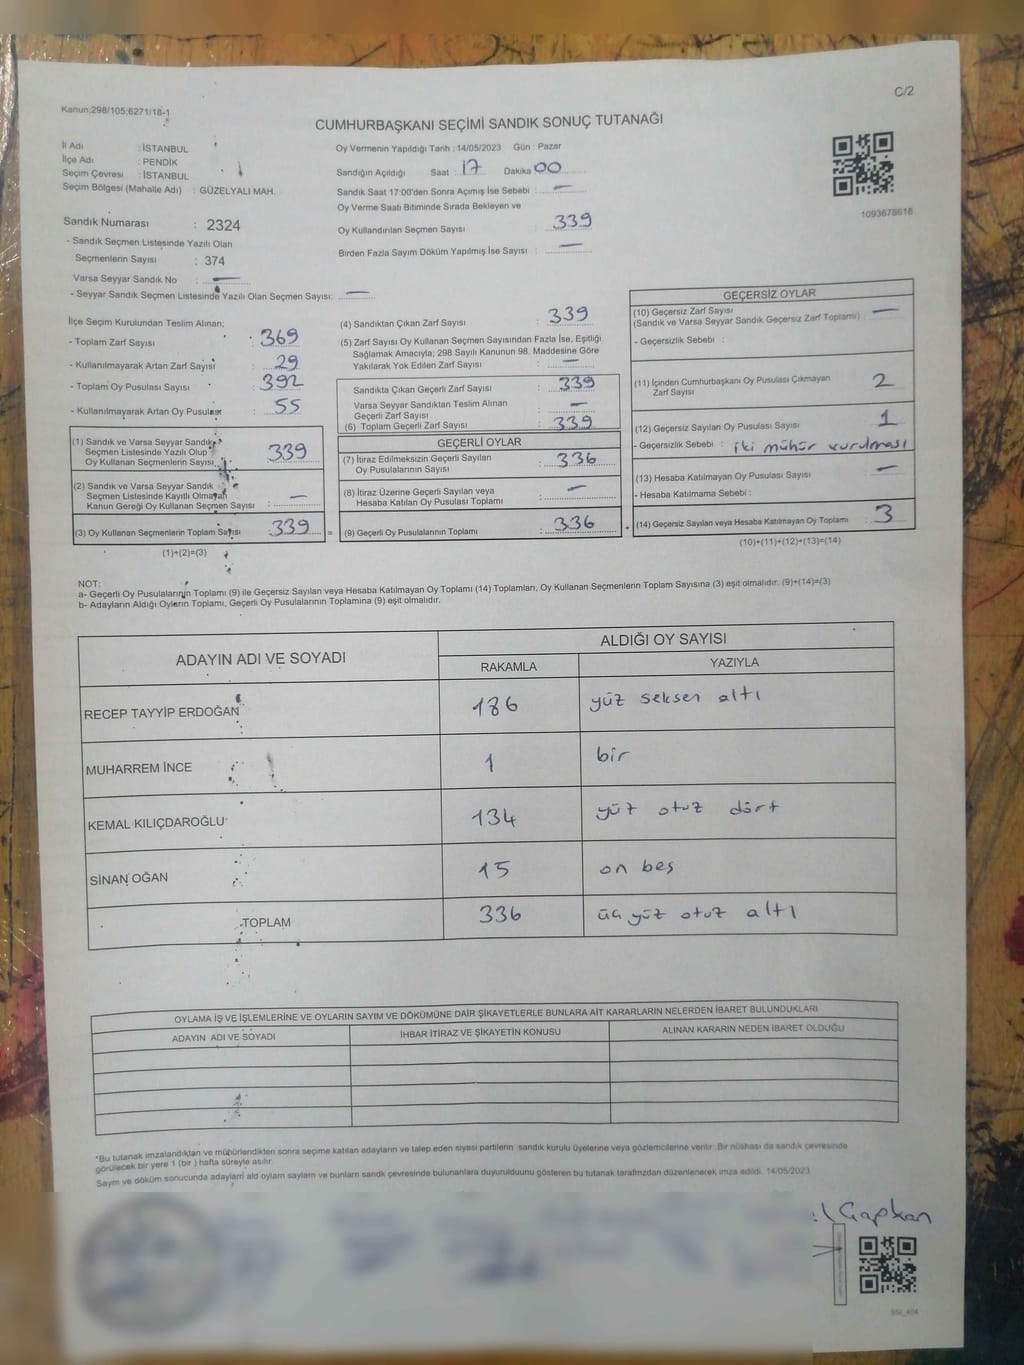 C/2
Kanun:298/105;6271/18-1
CUMHURBAŞKANI SEÇİMİ SANDIK SONUÇ TUTANAĞI
İl Adı : İSTANBUL
İlçe Adı : PENDİK
Seçim Çevresi : İSTANBUL
Seçim Bölgesi (Mahalle Adı) : GÜZELYALI MAH.
Sandık Numarası : 2324
- Sandık Seçmen Listesinde Yazılı Olan
Seçmenlerin Sayısı : 374
Varsa Seyyar Sandık No : —
- Seyyar Sandık Seçmen Listesinde Yazılı Olan Seçmen Sayısı: —
Oy Vermenin Yapıldığı Tarih : 14/05/2023 Gün : Pazar
Sandığın Açıldığı Saat : 17 Dakika 00
Sandık Saat 17:00'den Sonra Açımış İse Sebebi : —
Oy Verme Saati Bitiminde Sırada Bekleyen ve
Oy Kullandırılan Seçmen Sayısı : 339
Birden Fazla Sayım Döküm Yapılmış İse Sayısı : —
1093678618
İlçe Seçim Kurulundan Teslim Alınan;
- Toplam Zarf Sayısı : 369
- Kullanılmayarak Artan Zarf Sayısı : 29
- Toplam Oy Pusulası Sayısı : 392
- Kullanılmayarak Artan Oy Pusulası : 55
(1) Sandık ve Varsa Seyyar Sandık
Seçmen Listesinde Yazılı Olup
Oy Kullanan Seçmenlerin Sayısı : 339
(2) Sandık ve Varsa Seyyar Sandık
Seçmen Listesinde Kayıtlı Olmayan
Kanun Gereği Oy Kullanan Seçmen Sayısı : —
(3) Oy Kullanan Seçmenlerin Toplam Sayısı : 339 =
(1)+(2)=(3)
(4) Sandıktan Çıkan Zarf Sayısı : 339
(5) Zarf Sayısı Oy Kullanan Seçmen Sayısından Fazla İse, Eşitliği
Sağlamak Amacıyla; 298 Sayılı Kanunun 98. Maddesine Göre
Yakılarak Yok Edilen Zarf Sayısı : —
Sandıkta Çıkan Geçerli Zarf Sayısı : 339
Varsa Seyyar Sandıktan Teslim Alınan
Geçerli Zarf Sayısı : —
(6) Toplam Geçerli Zarf Sayısı : 339
GEÇERLİ OYLAR
(7) İtiraz Edilmeksizin Geçerli Sayılan
Oy Pusulalarının Sayısı : 336
(8) İtiraz Üzerine Geçerli Sayılan veya
Hesaba Katılan Oy Pusulası Toplamı : —
(9) Geçerli Oy Pusulalarının Toplamı : 336 +
GEÇERSİZ OYLAR
(10) Geçersiz Zarf Sayısı : —
(Sandık ve Varsa Seyyar Sandık Geçersiz Zarf Toplamı)
- Geçersizlik Sebebi :
(11) İçinden Cumhurbaşkanı Oy Pusulası Çıkmayan
Zarf Sayısı : 2
(12) Geçersiz Sayılan Oy Pusulası Sayısı : 1
- Geçersizlik Sebebi : iki mühür vurulması
(13) Hesaba Katılmayan Oy Pusulası Sayısı : —
- Hesaba Katılmama Sebebi :
(14) Geçersiz Sayılan veya Hesaba Katılmayan Oy Toplamı : 3
(10)+(11)+(12)+(13)=(14)
NOT:
a- Geçerli Oy Pusulalarının Toplamı (9) ile Geçersiz Sayılan veya Hesaba Katılmayan Oy Toplamı (14) Toplamları, Oy Kullanan Seçmenlerin Toplam Sayısına (3) eşit olmalıdır. (9)+(14)=(3)
b- Adayların Aldığı Oyların Toplamı, Geçerli Oy Pusulalarının Toplamına (9) eşit olmalıdır.
ADAYIN ADI VE SOYADI
ALDIĞI OY SAYISI
RAKAMLA YAZIYLA
RECEP TAYYİP ERDOĞAN 186 yüz seksen altı
MUHARREM İNCE 1 bir
KEMAL KILIÇDAROĞLU 134 yüz otuz dört
SİNAN OĞAN 15 on beş
TOPLAM 336 üç yüz otuz altı
OYLAMA İŞ VE İŞLEMLERİNE VE OYLARIN SAYIM VE DÖKÜMÜNE DAİR ŞİKAYETLERLE BUNLARA AİT KARARLARIN NELERDEN İBARET BULUNDUKLARI
ADAYIN ADI VE SOYADI İHBAR İTİRAZ VE ŞİKAYETİN KONUSU ALINAN KARARIN NEDEN İBARET OLDUĞU
*Bu tutanak imzalandıktan ve mühürlendikten sonra seçime katılan adayların ve talep eden siyasi partilerin sandık kurulu üyelerine veya gözlemcilerine verilir. Bir nüshası da sandık çevresinde
görülecek bir yere 1 (bir ) hafta süreyle asılır.
Sayım ve döküm sonucunda adayların ald oyların sayları ve bunların sandk çevresinde bulunanlara duyurulduunu gösteren bu tutanak tarafmzdan düzenlenerek imza edildi. 14/05/2023